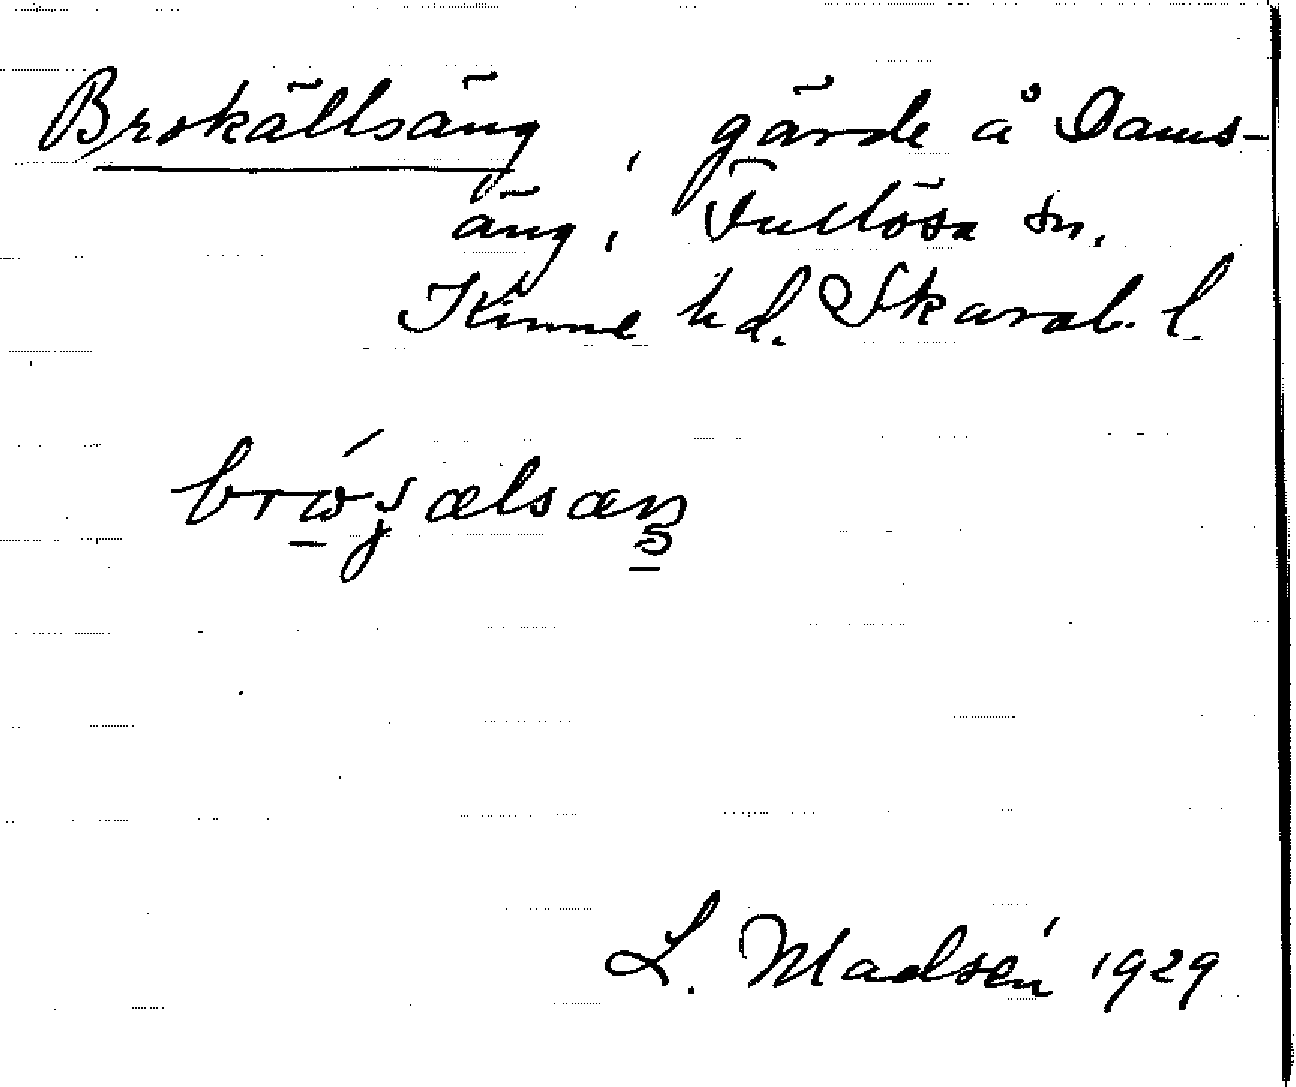 Brokällsäng, gärde å Dams-
äng, Fullösa sn,
Kinne hd. Skarab. l.
L. Madsén 1929